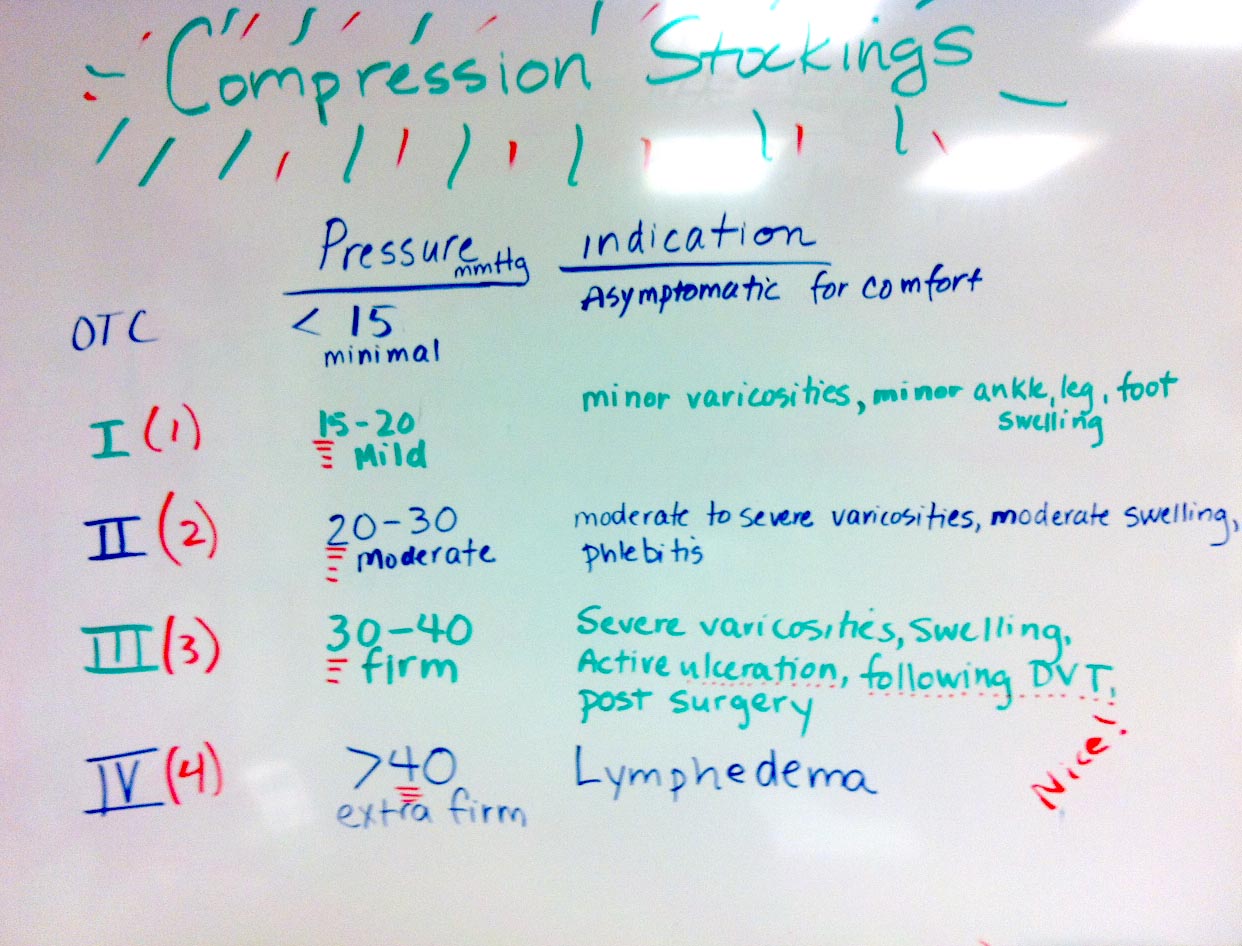 Compression Stockings
Pressure mmHg indication
OTC < 15 Asymptomatic for comfort
minimal
I (1) 15-20 minor varicosities, minor ankle, leg, foot
Mild swelling
II (2) 20-30 moderate to severe varicosities, moderate swelling,
moderate phlebitis
III (3) 30-40 Severe varicosities, Swelling,
firm Active ulceration, following DVT,
post surgery
Nice!
IV (4) >40 Lymphedema
extra firm